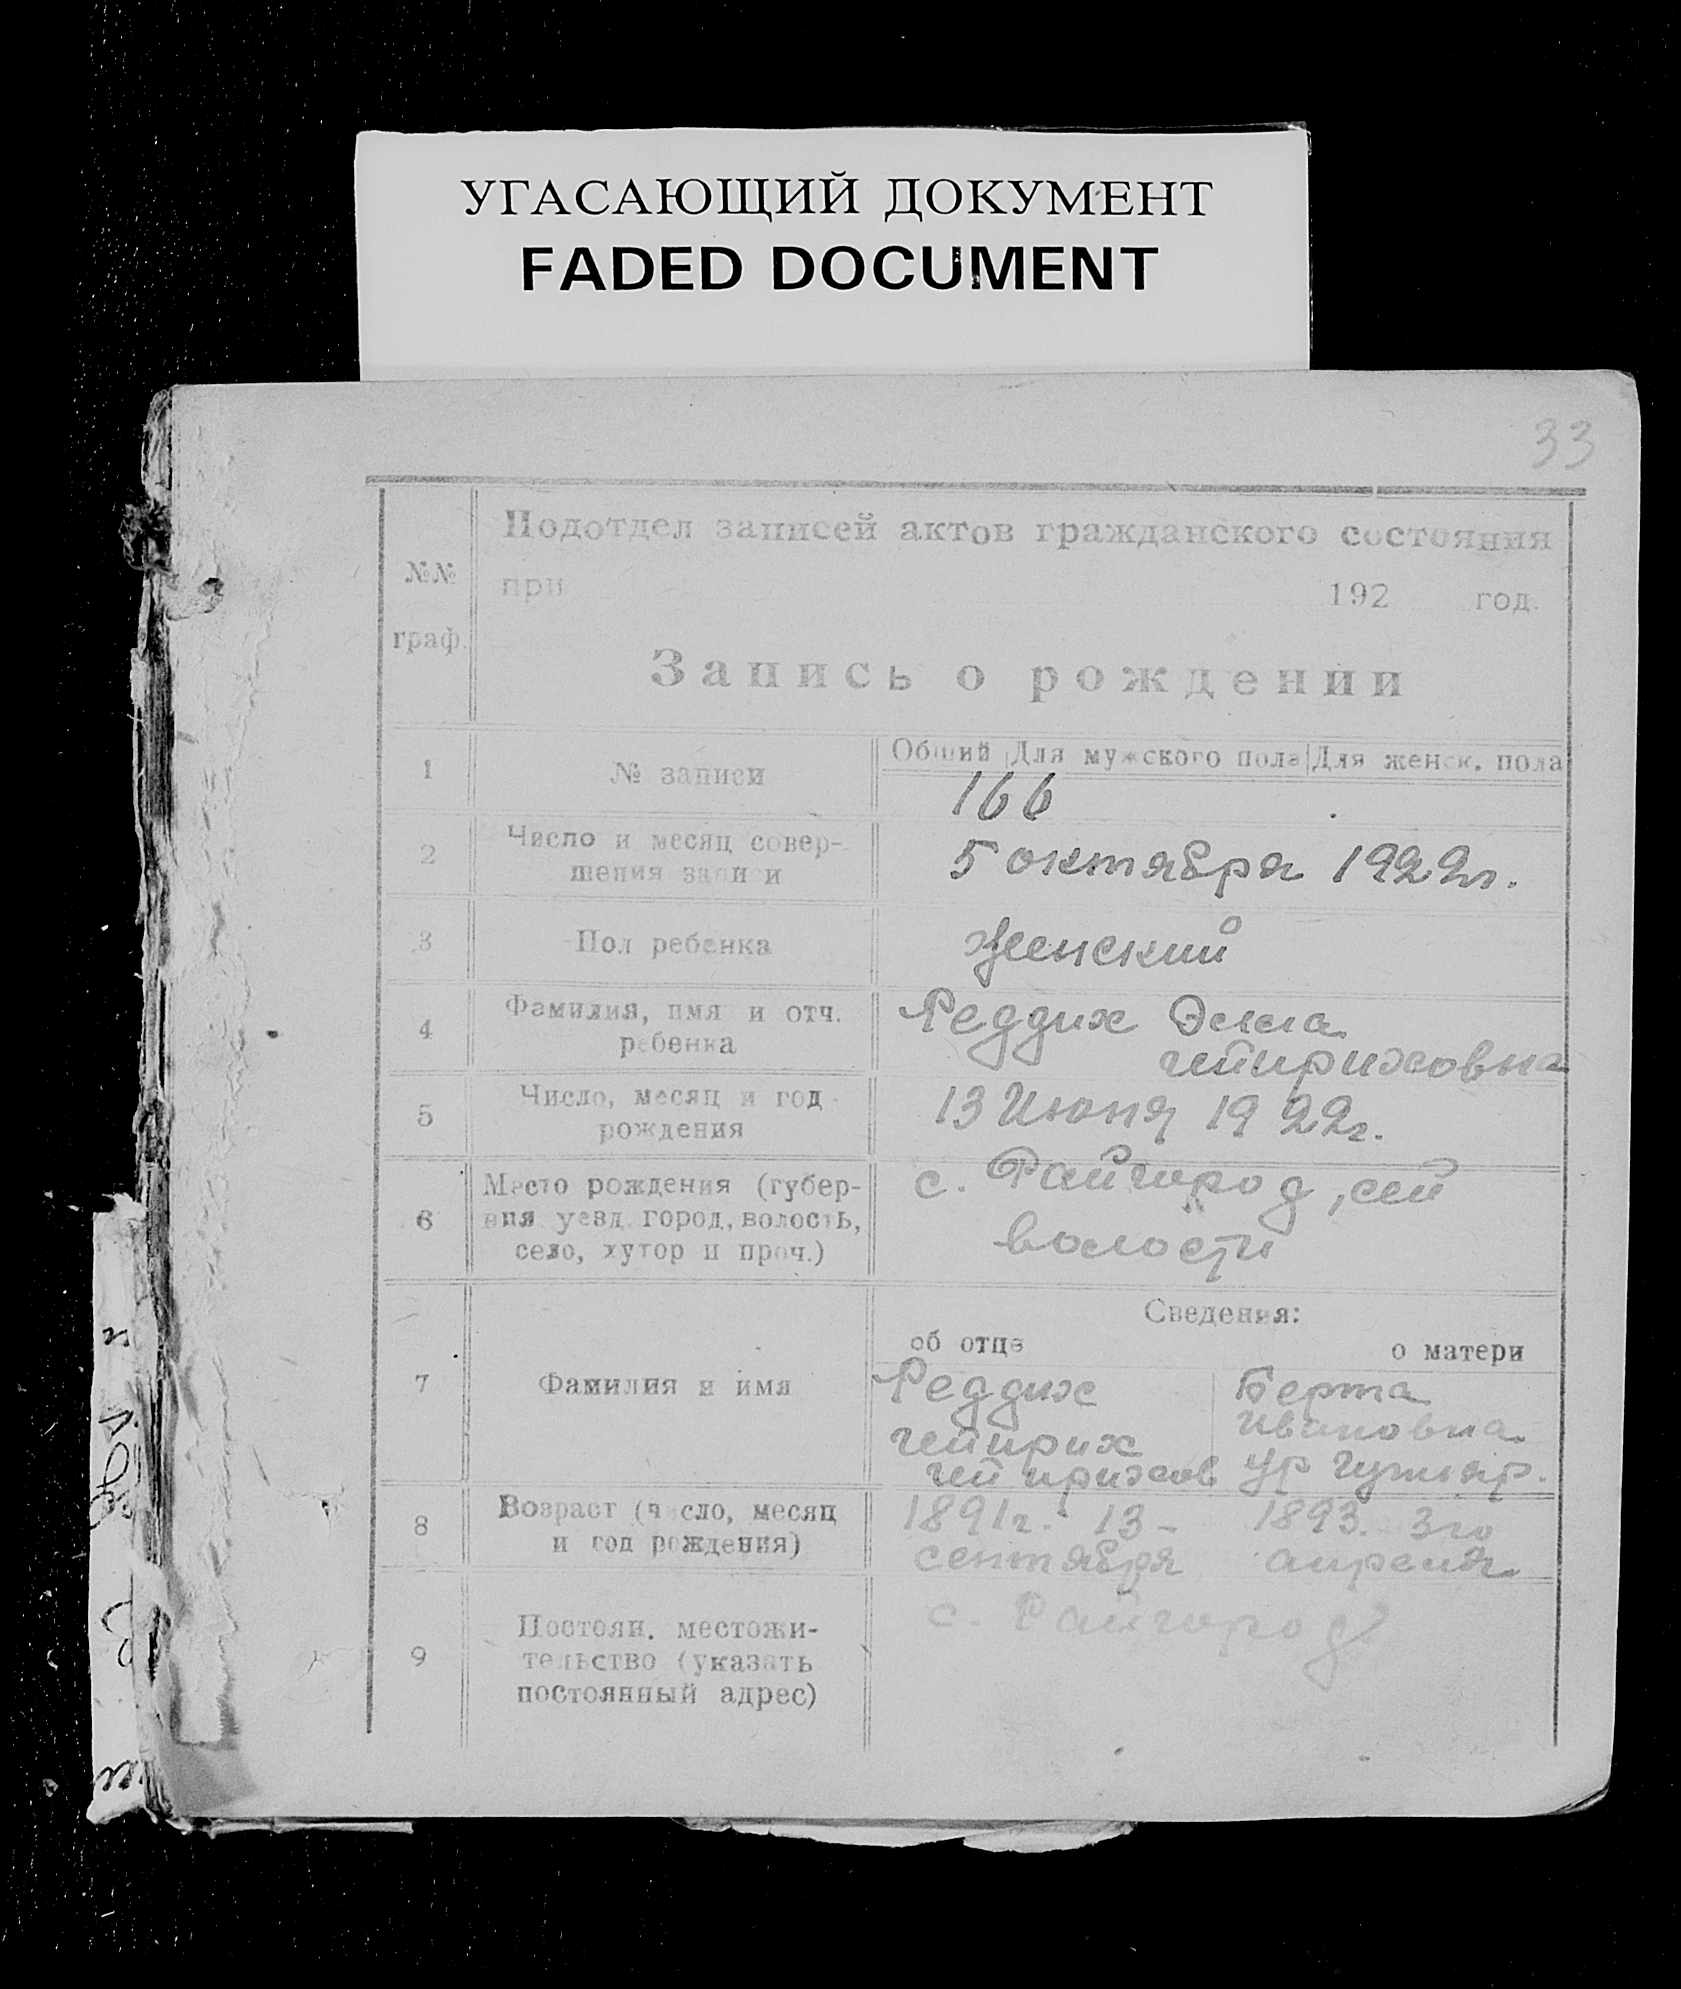 УГАСАЮЩИЙ ДОКУМЕНТ
FADED DOCUMENT
33
№№
граф.
Подотдел записей актов гражданского состояния
при 192 год.
Запись о рождении
1
№ записи
Общий Для мужского пола Для женск. пола
166
2
Число и месяц совер-
шения записи
5 октября 1922г.
3
Пол ребенка
Женский
4
Фамилия, имя и отч.
ребенка
Реддих Эмма
Гейнриховна
5
Число, месяц и год
рождения
13 Июня 1922г.
6
Место рождения (губер-
ния уезд, город, волость,
село, хутор и проч.)
с. Райгород, сей
волости
Сведения:
об отце
о матери
7
Фамилия и имя
Реддих
Гейнрих
Гейнрихов
Берта
Ивановна
ур
8
Возраст (число, месяц
и год рождения)
1891г. 13-
сентября
1893. 3го
апреля
9
Постоян. местожи-
тельство (указать
постоянный адрес)
с. Райгород